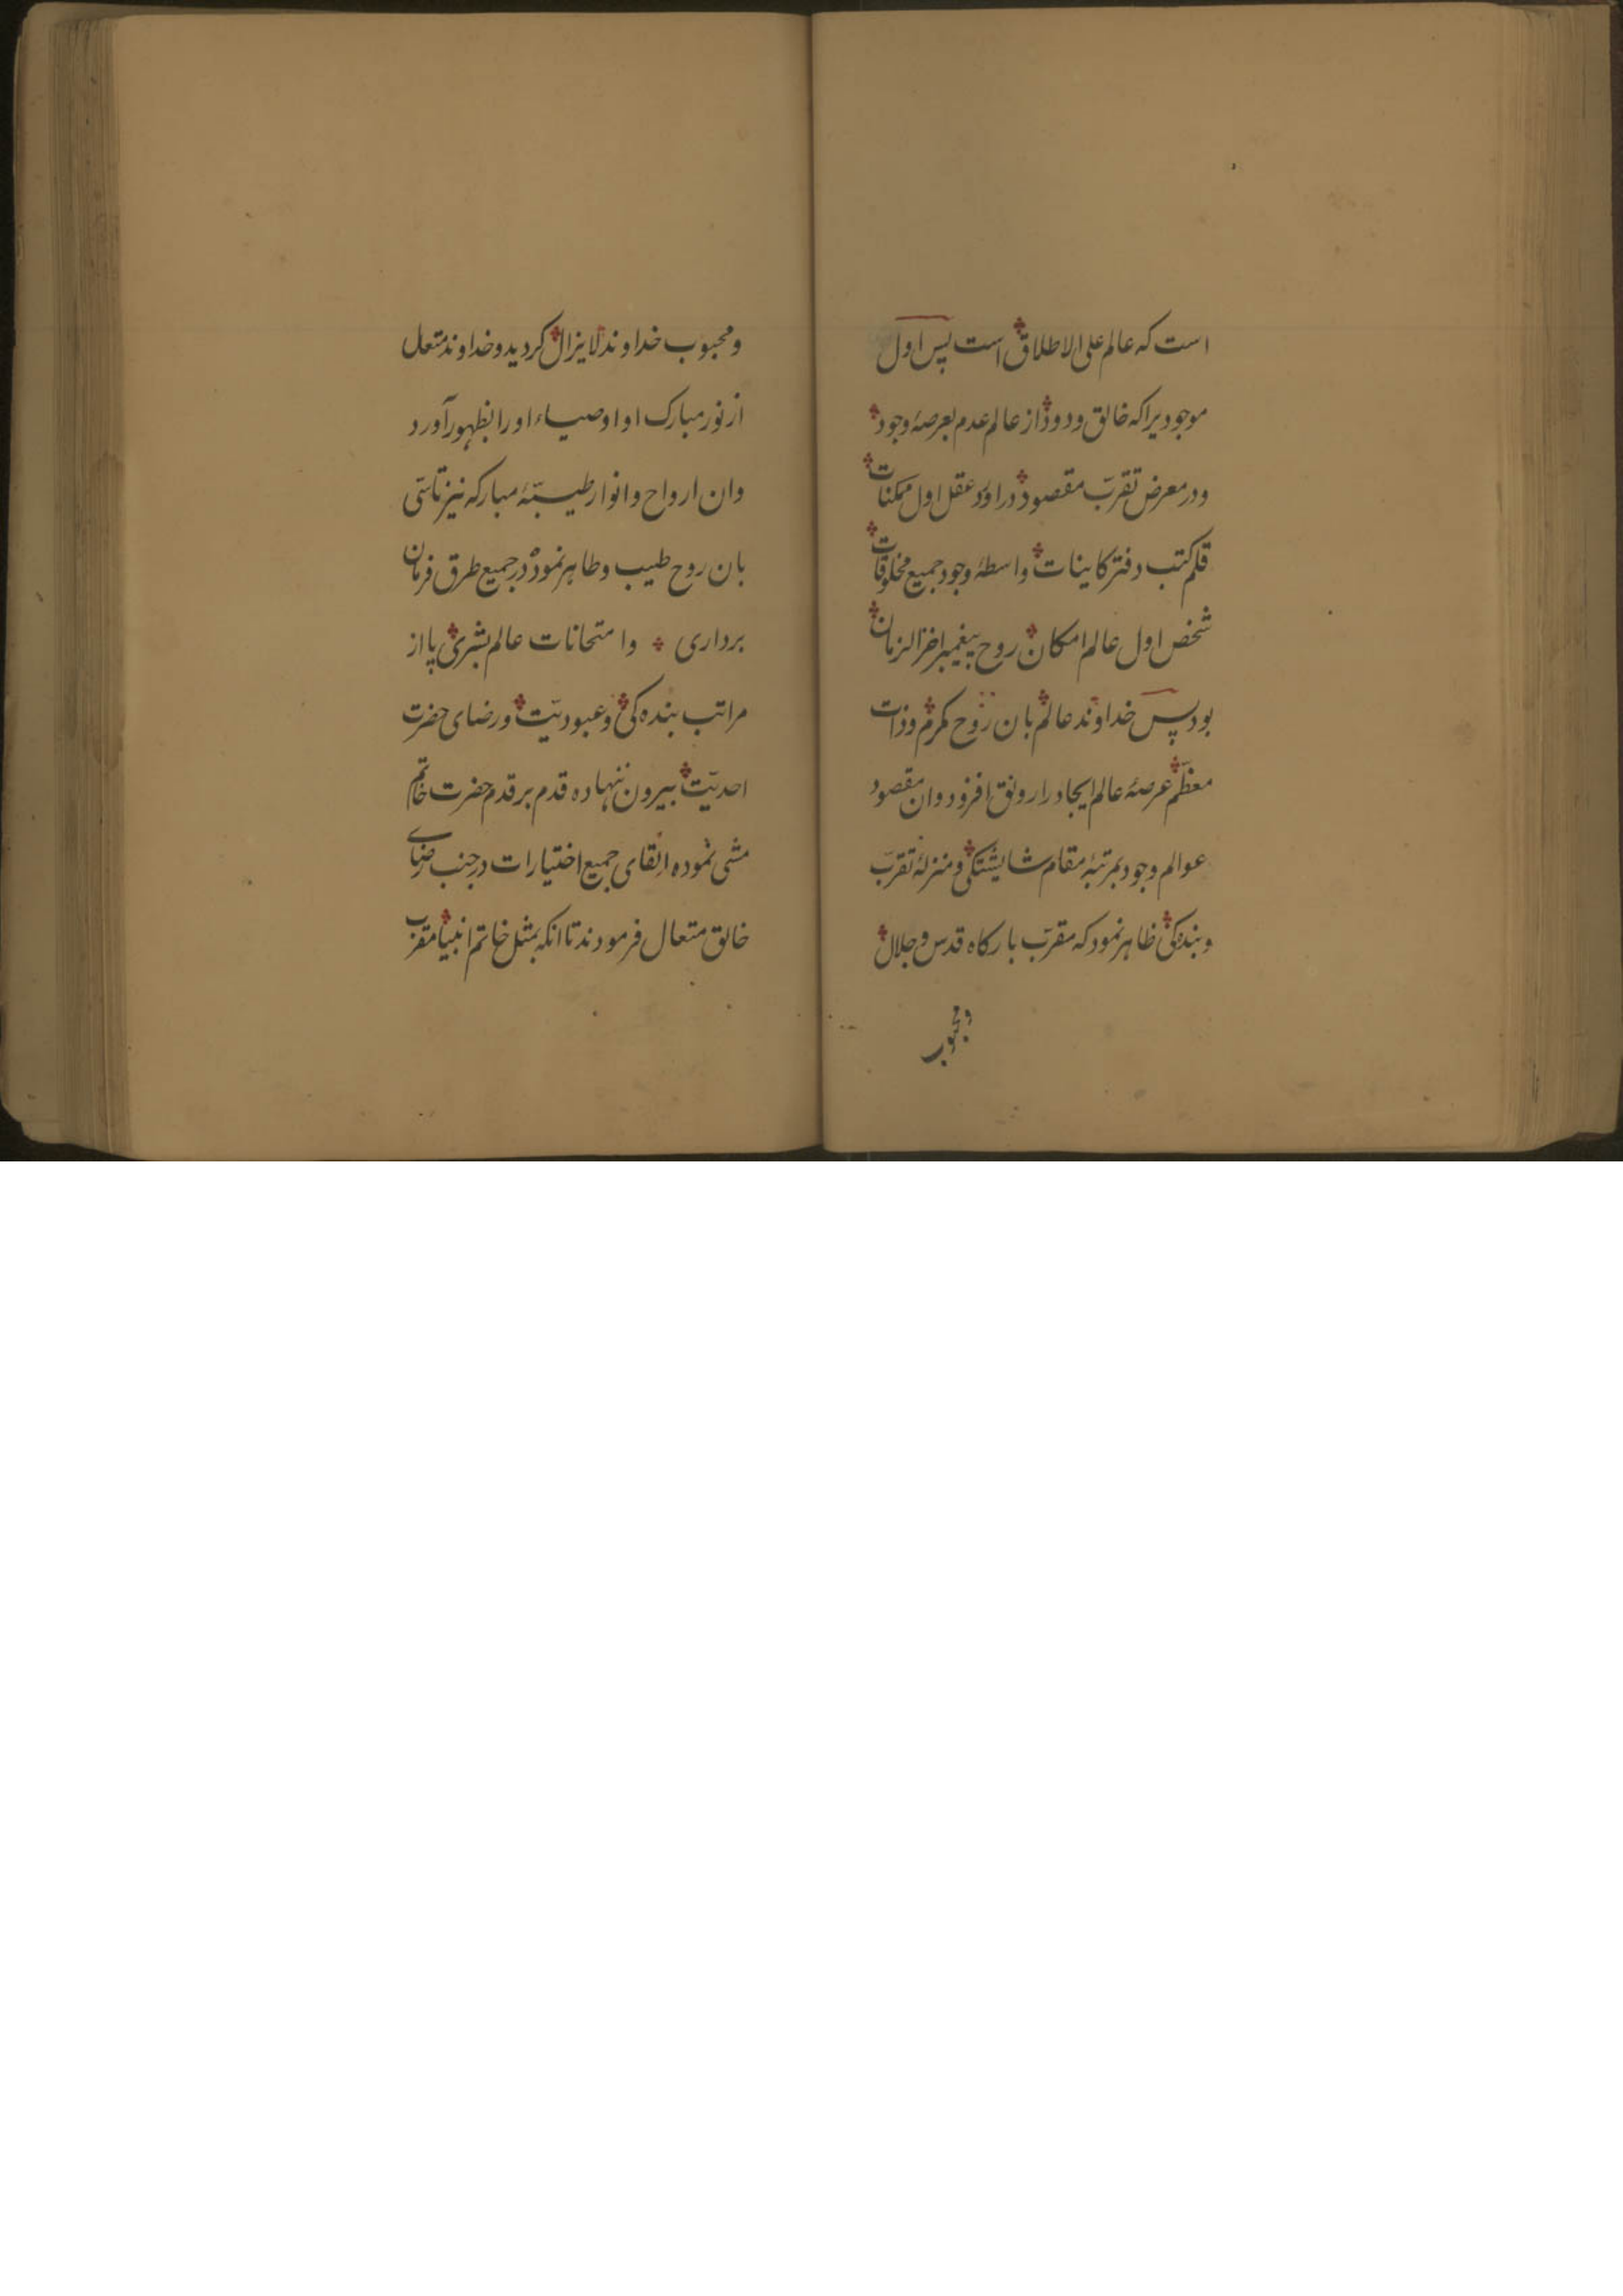 است که عالم علی الاطلاق است پس اول
موجودیرا که خالق ودود از عالم عدم بعرصهٔ وجود
و در معرض تقرّب مقصود دراورد عقل اول ممکنات
قلم کتب دفتر کاینات واسطهٔ وجود جمیع مخلوقات
شخص اول عالم امکان روح پیغمبر اخر الزمان
بود پس خداوند عالم بان روح مکرم و ذات
معظّم عرصهٔ عالم ایجاد را رونق افزود و ان مقصود
عوالم وجود بمرتبهٔ مقام شایستکی و منزلهٔ تقرّب
و بنده‌کی ظاهر نمود که مقرّب بارکاه قدس و جلال
و محبوب
و محبوب خداوند لایزال کردید و خداوند متعال
از نور مبارک او اوصیاء او را بظهور آورد
وان ارواح و انوار طیبّهٔ مبارکه نیز تاسّی
بان روح طیب و طاهر نمود در جمیع طرق فرمان
برداری وامتحانات عالم بشری پا از
مراتب بنده کی و عبودیّت و رضای حضرت
احدیّت بیرون ننهاده قدم بر قدم حضرت خاتم
مشی نموده القای جمیع اختیارات در جنب رضای
خالق متعال فرمودند تا انکه بمثل خاتم انبیا مقرب